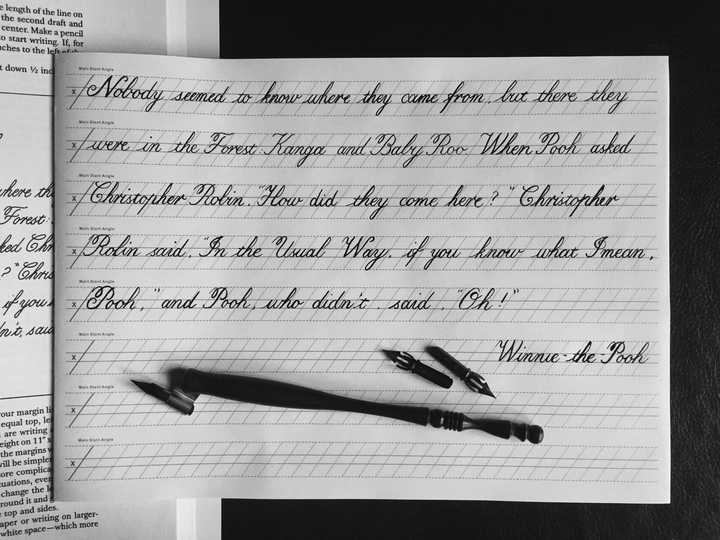 length of the line on
the second draft and
center. Make a pencil
start writing. If, for
to the left of
down ½
where
Forest.
? "
if you
margin
equal top,
are writing
on 11"
the margins
be
change the
it and
top and sides.
or writing on larger-
white space—which more
Main Slant Angle
x Nobody seemed to know where they came from, but there they
Main Slant Angle
x were in the Forest. Kanga and Baby Roo. When Pooh asked
Main Slant Angle
x Christopher Robin, "How did they come here?" Christopher
Main Slant Angle
x Robin said, "In the Usual Way, if you know what I mean,
Main Slant Angle
x Pooh," and Pooh, who didn't, said, "Oh!"
Main Slant Angle
x Winnie-the-Pooh
Main Slant Angle
x
Main Slant Angle
x